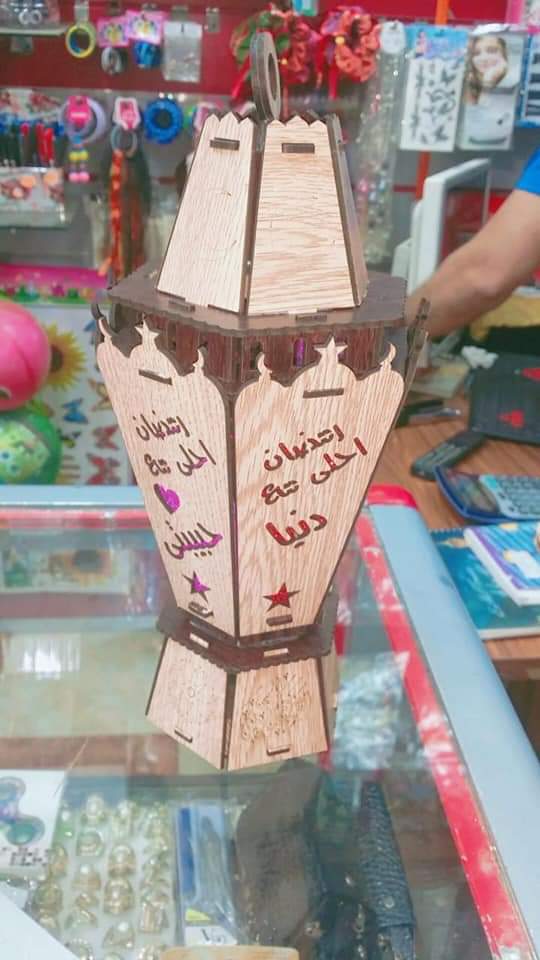 رمضان
احلى مع
حبيبتى
رمضان
احلى مع
دنيا